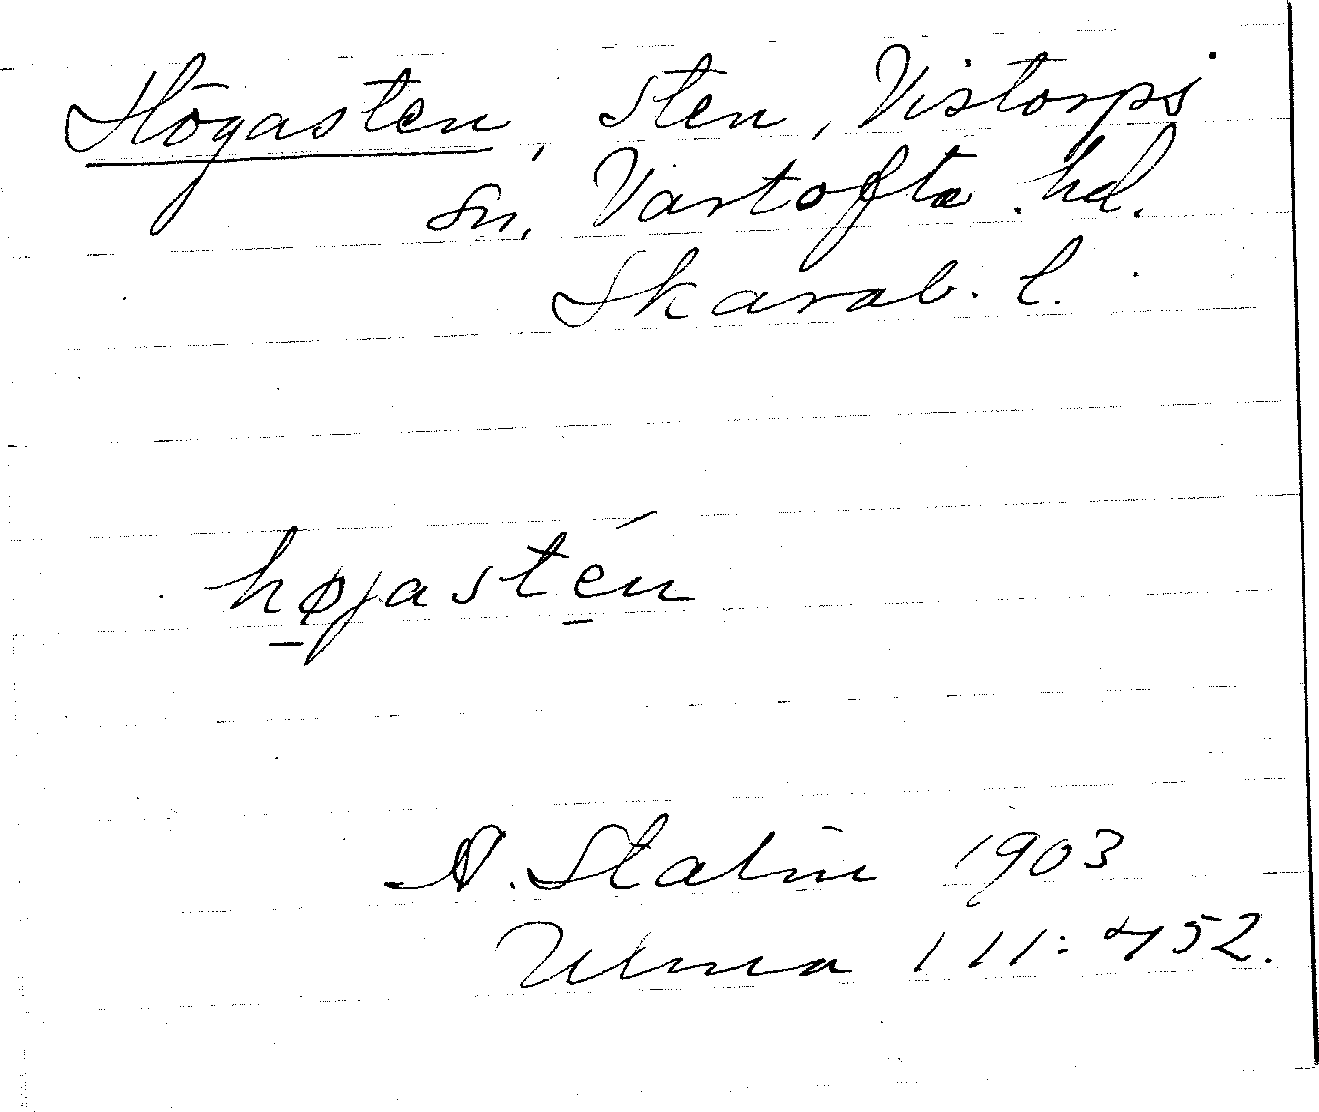 Högasten, sten, Vistorps
sn, Vartofta hd.
Skarab. l.
hø̱jasté̱n
A. Stalin 1903
Ulma 111:452.